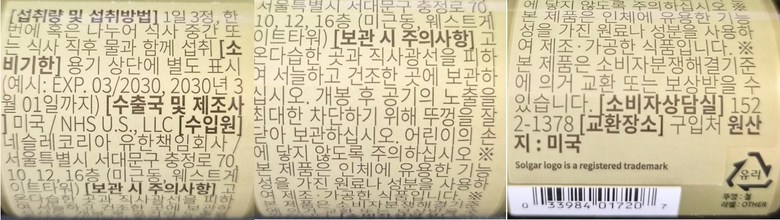 [섭취량 및 섭취방법] 1일 3정, 한
번에 혹은 나누어 식사 중간 또
는 식사 직후 물과 함께 섭취 [소
비기한] 용기 상단에 별도 표시
(예시: EXP. 03/2030, 2030년 3
월 01일까지) [수출국 및 제조사
] 미국 / NHS U.S., LLC [수입원]
네슬레코리아 유한책임회사 /
서울특별시 서대문구 충정로 70,
10, 12, 16층 (미근동, 웨스트게
이트타워) [보관 시 주의사항] 고
온다습한 곳과 직사광선을 피하
서울특별시 서대문구 충정로 70,
10, 12, 16층 (미근동, 웨스트게
이트타워) [보관 시 주의사항] 고
온다습한 곳과 직사광선을 피하
여 서늘하고 건조한 곳에 보관하
십시오. 개봉 후 공기의 노출을
최대한 차단하기 위해 뚜껑을 잘
닫아 보관하십시오. 어린이의 손
에 닿지 않도록 주의하십시오 ※
본 제품은 인체에 유용한 기능
성을 가진 원료나 성분을 사용하
여 제조·가공한 식품입니다. ※
본 제품은 소비자분쟁해결기준
에 닿지 않도록 주의하십시오 ※
본 제품은 인체에 유용한 기능
성을 가진 원료나 성분을 사용하
여 제조·가공한 식품입니다. ※
본 제품은 소비자분쟁해결기준
에 의거 교환 또는 보상받을 수
있습니다. [소비자상담실] 152
2-1378 [교환장소] 구입처 원산
지 : 미국
Solgar logo is a registered trademark
유리
뚜껑 : 철
라벨 : OTHER
0 33984 01720 7